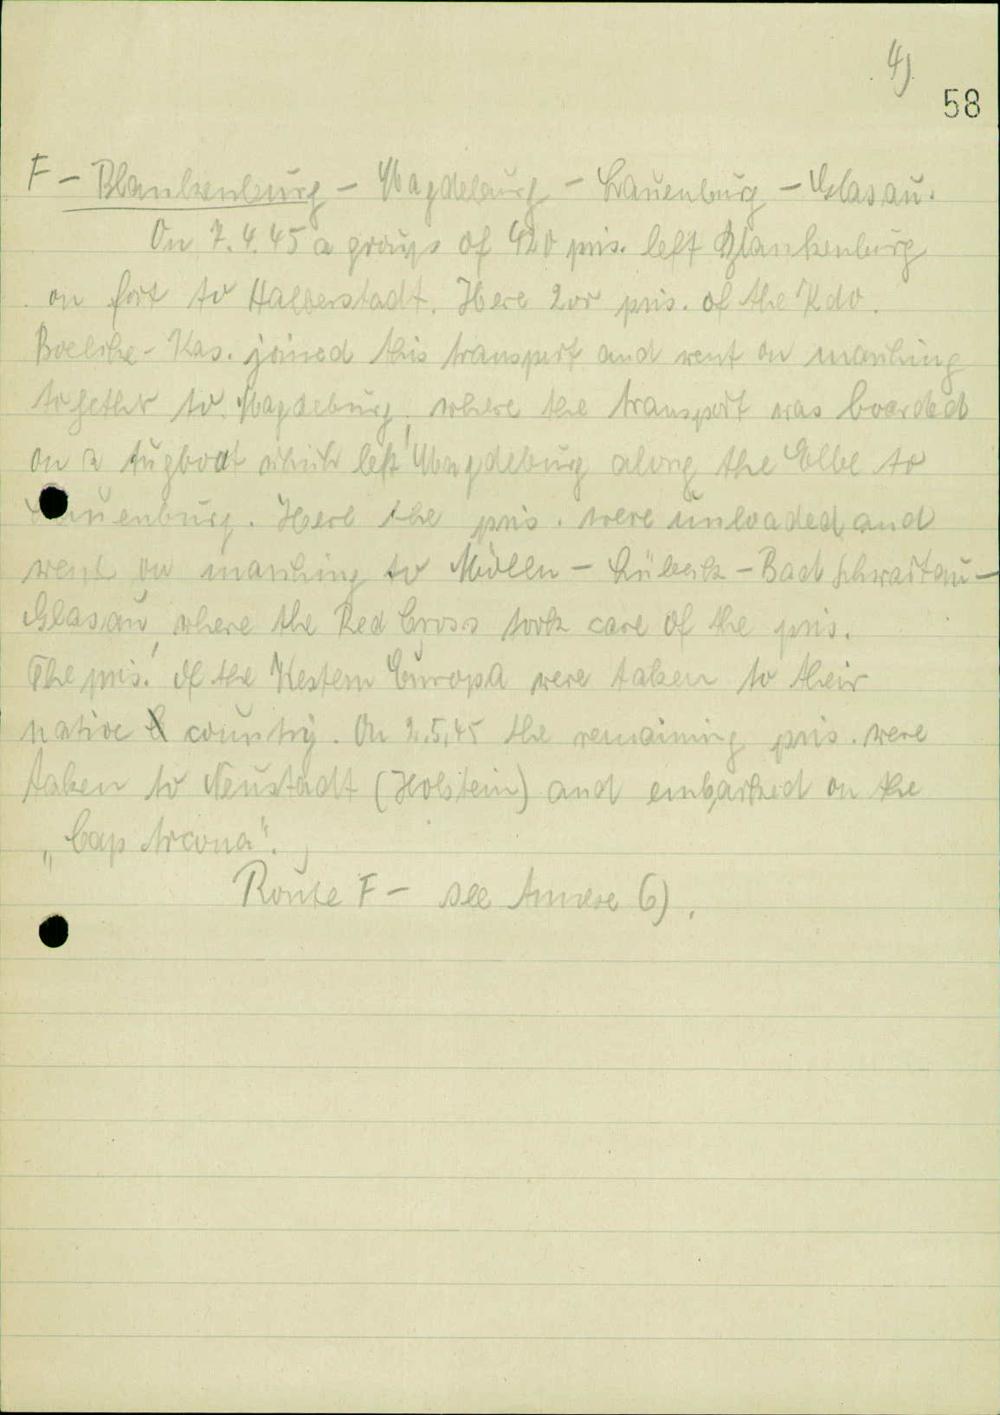 4)
58
F – Blankenburg – Magdeburg – Lauenburg – Glasau.
On 7.4.45 a group of 420 pris. left Blankenburg
on fort to Halberstadt. Here 200 pris. of the Kdo.
Boelcke-Kas. joined this transport and went on marching
together to Magdeburg, where the transport was boarded
on a tugboat which left Magdeburg along the Elbe to
Lauenburg. Here the pris. were unloaded and
went on marching to Mölln – Lübeck – Bad Schwartau –
Glasau, where the Red Cross took care of the pris.
The pris. of the Western Europa were taken to their
native country. On 2.5.45 the remaining pris. were
taken to Neustadt (Holstein) and embarked on the
„Cap Arcona".
Route F – see Annexe 6).